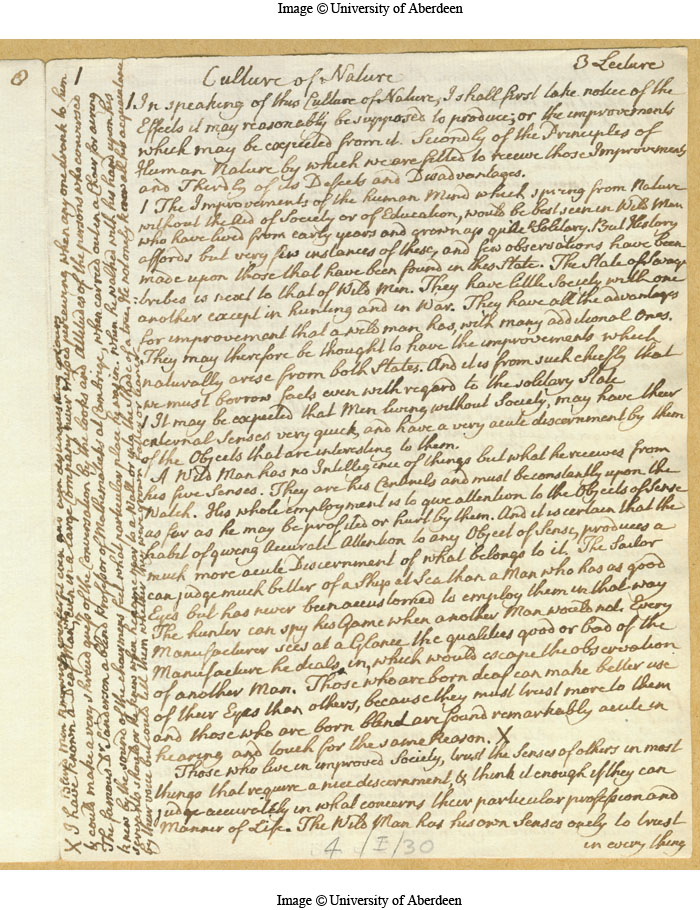 Image © University of Aberdeen
8
1
3 Lecture
Culture of Nature
1 In speaking of this Culture of Nature, I shall first take notice of the
Effects it may reasonably be supposed to produce; or the improvements
which may be expected from it. Secondly of the Principles of
Human Nature by which we are fitted to receive those Improvements
and Thirdly of its Defects and Disadvantages.
1 The Improvements of the human Mind which spring from Nature
without the Aid of Society or of Education, would be best seen in Wild Men
who have lived from early years and grown up quite Solitary. But History
affords but very few instances of these, and few observations have been
made upon those that have been found in this State. The State of Savage
tribes is next to that of Wild Men. They have little Society with one
another except in hunting and in War. They have all the advantages
for improvement that a wild man has, with many additional Ones.
They may therefore be thought to have the improvements which
naturally arise from both States. And it is from such chiefly that
we must borrow facts even with regard to the solitary State
1 It may be expected that Men living without Society, may have their
external Senses very quick, and have a very acute discernment by them
of the Objects that are interesting to them.
A Wild Man has no Intelligence of things but what he receives from
his five Senses. They are his Centinels and must be constantly upon the
Watch. His whole employment is to give attention to the Objects of Sense
as far as he may be profited or hurt by them. And it is certain that the
habit of giving Accurate Attention to any Object of Sense, produces a
much more acute Discernment of what belongs to it. The Sailor
can judge much better of a Ship at Sea than a Man who has as good
Eyes but has never been accustomed to employ them in that way
The hunter can spy his Game when another Man would not. Every
Manufacturer sees at a Glance the qualities good or bad of the
Manufacture he deals in, which would escape the observation
of another Man. Those who are born deaf can make better use
of their Eyes than others, because they must trust more to them
and those who are born blind are found remarkably acute in
hearing and touch for the same Reason. X
Those who live in improved Society, trust the Senses of others in most
things that require a nice discernment & think it enough if they can
judge accurately in what concerns their particular profession and
Manner of Life. The Wild Man has his own Senses onely to trust
in every thing
4 / I / 30
X I have known a Deaf Man, who in a large Company never misses perceiving when any one drank to him
& could make a very shreud guess of the Conversation by the looks and Attitudes of the persons who conversed
The famous Dr Sanderson a blind Professor of Mathematicks at Cambrige, when carried out in a Chair for airing
knew by the sound of the chairmens feet what particular place he was in. when he walked with his hand upon his
he knew when he came near to a Wall or even to the trunk of a tree. He not only knew all his acquaintance
by their voice but could tell them whether they
Image © University of Aberdeen